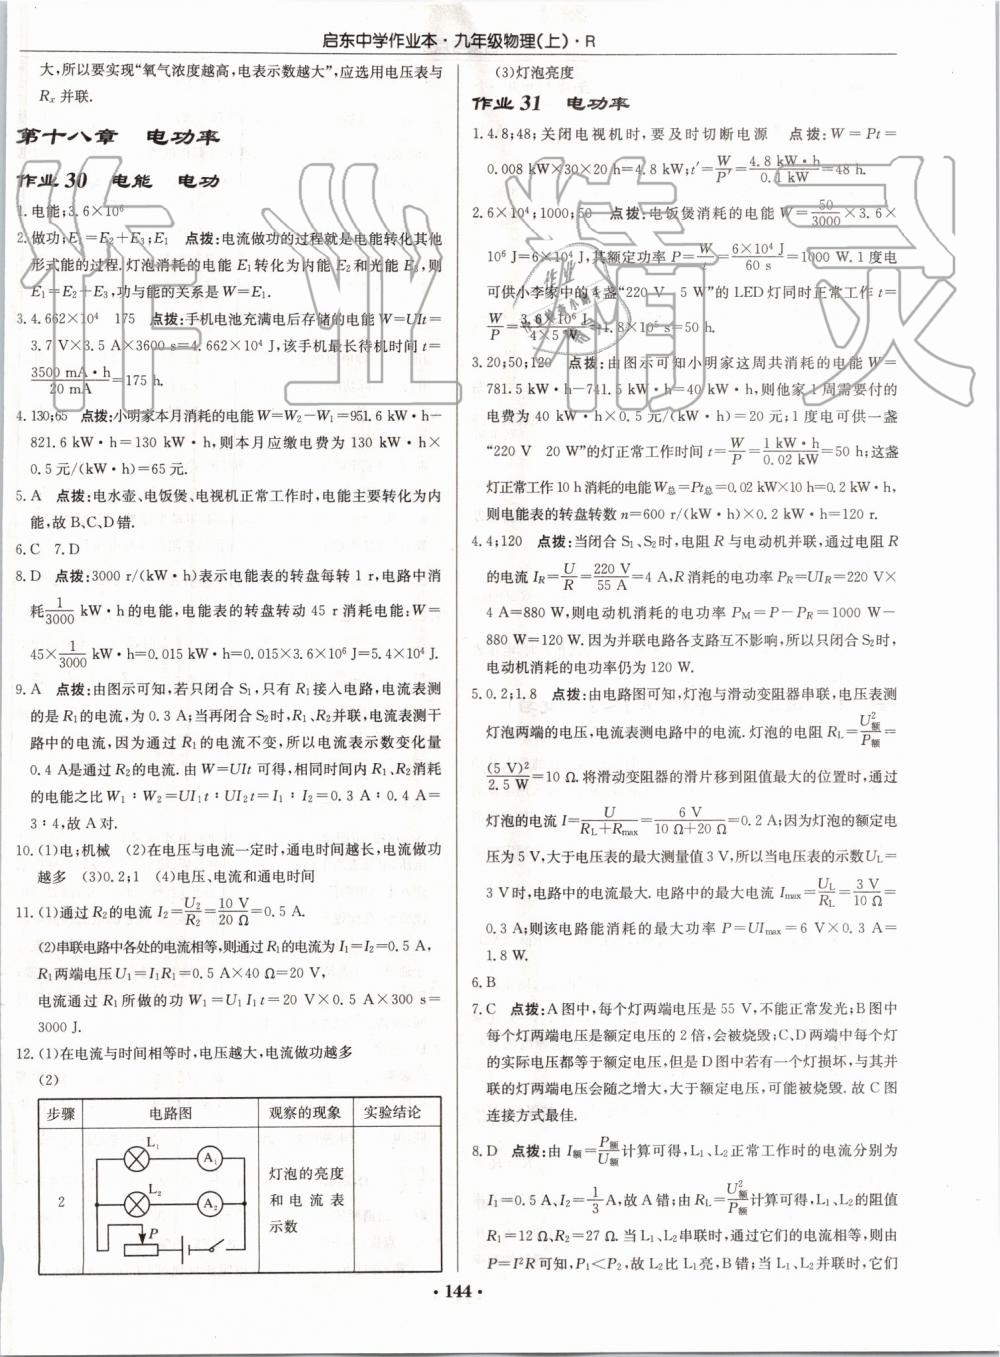 启东中学作业本·九年级物理(上)·R
大,所以要实现“氧气浓度越高,电表示数越大”,应选用电压表与
Rₓ 并联.
第十八章 电功率
作业 30 电能 电功
1. 电能;3.6×10⁶
2. 做功;E₁=E₂+E₃;E₁ 点拨:电流做功的过程就是电能转化其他
形式能的过程.灯泡消耗的电能 E₁转化为内能 E₂和光能 E₃,则
E₁=E₂+E₃,功与能的关系是 W=E₁.
3. 4.662×10⁴ 175 点拨:手机电池充满电后存储的电能 W=UIt=
3.7 V×3.5 A×3600 s=4.662×10⁴ J,该手机最长待机时间 t=
3500 mA·h/20 mA=175 h.
4. 130;65 点拨:小明家本月消耗的电能 W=W₂-W₁=951.6 kW·h-
821.6 kW·h=130 kW·h,则本月应缴电费为 130 kW·h×
0.5 元/(kW·h)=65 元.
5. A 点拨:电水壶、电饭煲、电视机正常工作时,电能主要转化为内
能,故 B、C、D 错.
6. C 7. D
8. D 点拨:3000 r/(kW·h)表示电能表的转盘每转 1 r,电路中消
耗1/3000 kW·h的电能,电能表的转盘转动 45 r 消耗电能:W=
45×1/3000 kW·h=0.015 kW·h=0.015×3.6×10⁶ J=5.4×10⁴ J.
9. A 点拨:由图示可知,若只闭合 S₁,只有 R₁接入电路,电流表测
的是 R₁的电流,为 0.3 A;当再闭合 S₂时,R₁、R₂并联,电流表测干
路中的电流,因为通过 R₁的电流不变,所以电流表示数变化量
0.4 A是通过 R₂的电流.由 W=UIt 可得,相同时间内 R₁、R₂消耗
的电能之比 W₁∶W₂=UI₁t∶UI₂t=I₁∶I₂=0.3 A∶0.4 A=
3∶4,故 A 对.
10. (1)电;机械 (2)在电压与电流一定时,通电时间越长,电流做功
越多 (3)0.2;1 (4)电压、电流和通电时间
11. (1)通过 R₂的电流 I₂=U₂/R₂=10 V/20 Ω=0.5 A.
(2)串联电路中各处的电流相等,则通过 R₁的电流为 I₁=I₂=0.5 A,
R₁两端电压 U₁=I₁R₁=0.5 A×40 Ω=20 V,
电流通过 R₁所做的功 W₁=U₁I₁t=20 V×0.5 A×300 s=
3000 J.
12. (1)在电流与时间相等时,电压越大,电流做功越多
(2)
步骤 电路图 观察的现象 实验结论
2 L₁ A₁ L₂ A₂ P
灯泡的亮度
和电流表
示数
(3)灯泡亮度
作业 31 电功率
1. 4.8;48;关闭电视机时,要及时切断电源 点拨:W=Pt=
0.008 kW×30×20 h=4.8 kW;t′=W/P′=4.8 kW·h/0.1 kW=48 h.
2. 6×10⁴;1000;50 点拨:电饭煲消耗的电能 W=50/3000×3.6×
10⁶ J=6×10⁴ J,其额定功率 P=W/t=6×10⁴ J/60 s=1000 W.1 度电
可供小李家中的 4 盏“220 V 5 W”的 LED 灯同时正常工作 t=
W/P=3.6×10⁶ J/4×5 W=1.8×10⁵ s=50 h.
3. 20;50;120 点拨:由图示可知小明家这周共消耗的电能 W=
781.5 kW·h-741.5 kW·h=40 kW·h,则他家 1 周需要付的
电费为 40 kW·h×0.5 元/(kW·h)=20 元;1 度电可供一盏
“220 V 20 W”的灯正常工作时间 t=W/P=1 kW·h/0.02 kW=50 h;这盏
灯正常工作 10 h 消耗的电能 W总=Pt总=0.02 kW×10 h=0.2 kW·h,
则电能表的转盘转数 n=600 r/(kW·h)×0.2 kW·h=120 r.
4. 4;120 点拨:当闭合 S₁、S₂时,电阻 R 与电动机并联,通过电阻 R
的电流 I_R=U/R=220 V/55 A=4 A,R 消耗的电功率 P_R=UI_R=220 V×
4 A=880 W,则电动机消耗的电功率 P_M=P-P_R=1000 W-
880 W=120 W.因为并联电路各支路互不影响,所以只闭合 S₂时,
电动机消耗的电功率仍为 120 W.
5. 0.2;1.8 点拨:由电路图可知,灯泡与滑动变阻器串联,电压表测
灯泡两端的电压,电流表测电路中的电流.灯泡的电阻 R_L=U²额/P额=
(5 V)²/2.5 W=10 Ω.将滑动变阻器的滑片移到阻值最大的位置时,通过
灯泡的电流 I=U/(R_L+R_max)=6 V/(10 Ω+20 Ω)=0.2 A;因为灯泡的额定电
压为 5 V,大于电压表的最大测量值 3 V,所以当电压表的示数U_L=
3 V时,电路中的电流最大.电路中的最大电流 I_max=U_L/R_L=3 V/10 Ω=
0.3 A;则该电路能消耗的最大功率 P=UI_max=6 V×0.3 A=
1.8 W.
6. B
7. C 点拨:A 图中,每个灯两端电压是 55 V,不能正常发光;B 图中
每个灯两端电压是额定电压的 2 倍,会被烧毁;C、D 两端中每个灯
的实际电压都等于额定电压,但是 D 图中若有一个灯损坏,与其并
联的灯两端电压会随之增大,大于额定电压,可能被烧毁.故 C 图
连接方式最佳.
8. D 点拨:由 I额=P额/U额计算可得,L₁、L₂正常工作时的电流分别为
I₁=0.5 A、I₂=1/3 A,故 A 错;由 R_L=U²额/P额计算可得,L₁、L₂的阻值
R₁=12 Ω、R₂=27 Ω.当 L₁、L₂串联时,它们的电流相等,则由
P=I²R 可知,P₁<P₂,故 L₂比 L₁亮,B 错;当 L₁、L₂并联时,它们
·144·
作业精灵